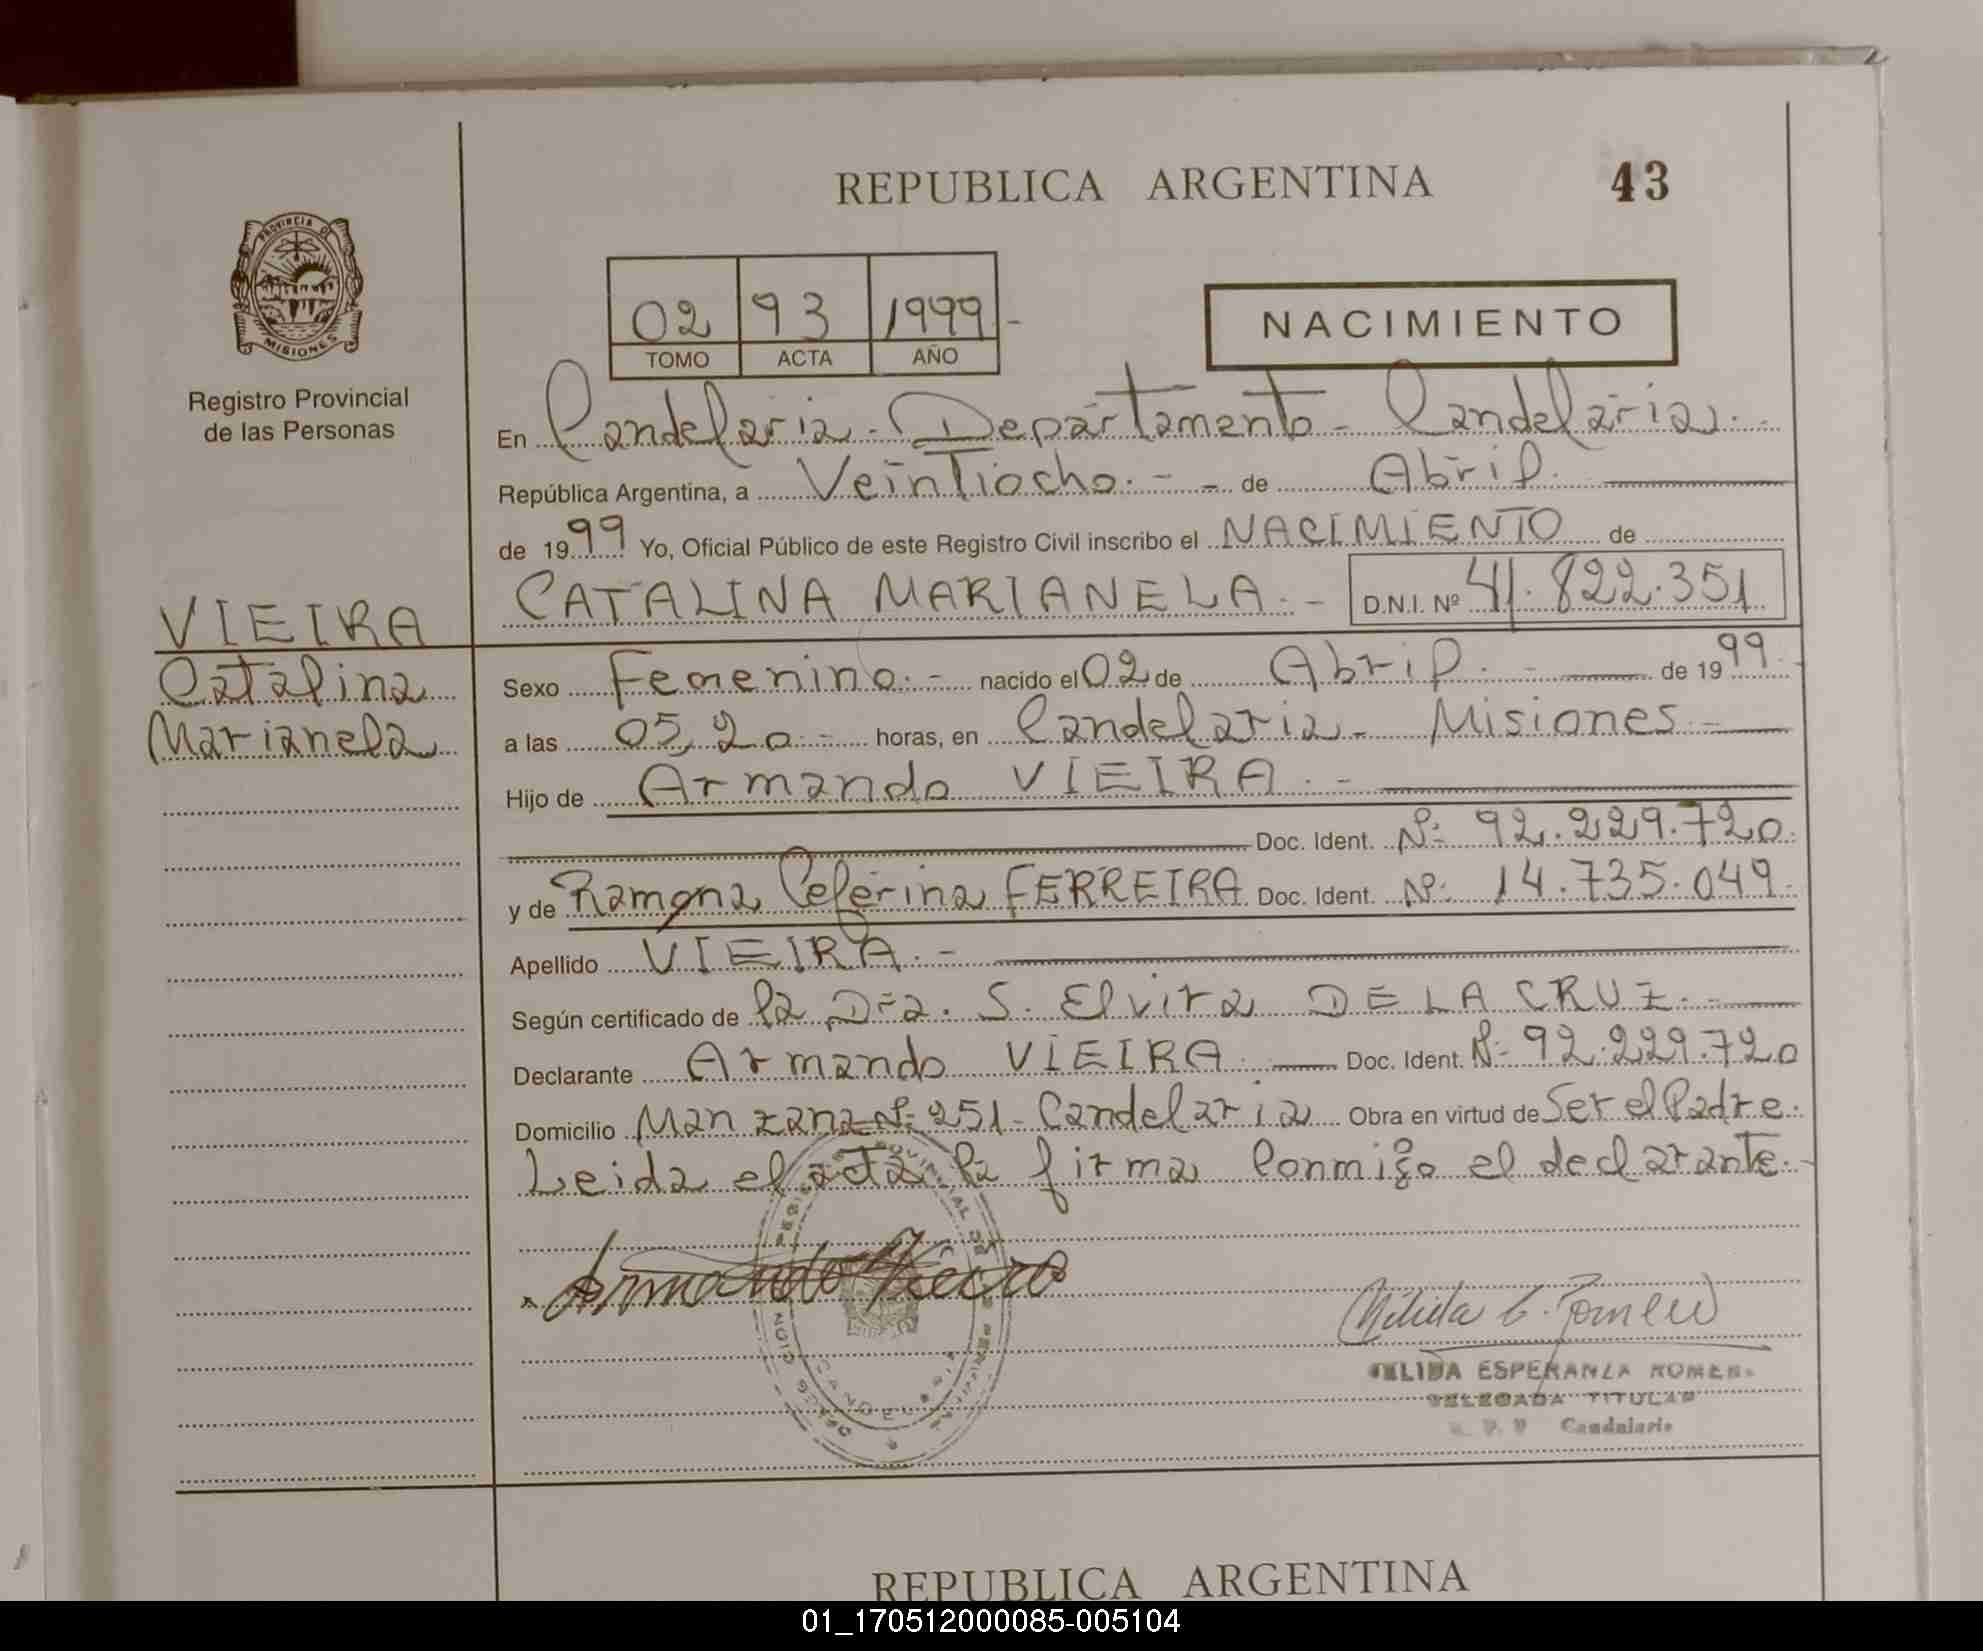 REPUBLICA ARGENTINA 43
PROVINCIA DE
MISIONES
Registro Provincial
de las Personas
02 93 1999.-
TOMO ACTA AÑO
NACIMIENTO
En Candelaria - Departamento - Candelaria.-
República Argentina, a Veintiocho.- - de Abril.
de 1999 Yo, Oficial Público de este Registro Civil inscribo el NACIMIENTO de
CATALINA MARIANELA.- D.N.I. Nº 41.822.351
VIEIRA
Catalina
Marianela
Sexo Femenino.- nacido el 02 de Abril.- de 1999.
a las 05,20.- horas, en Candelaria - Misiones.-
Hijo de Armando VIEIRA.-
Doc. Ident. Nº: 92.229.720.
y de Ramona Ceferina FERREIRA Doc. Ident. Nº: 14.735.049.
Apellido VIEIRA.-
Según certificado de la Dra. S. Elvira DE LA CRUZ.-
Declarante Armando VIEIRA Doc. Ident. Nº: 92.229.720
Domicilio Manzana Nº: 251 - Candelaria Obra en virtud de Ser el Padre.
Leida el acta la firma Conmigo el declarante.-
Armando Vieira
ESPERANZA
DELEGADA TITULAR
Candelaria
REPUBLICA ARGENTINA
01_170512000085-005104